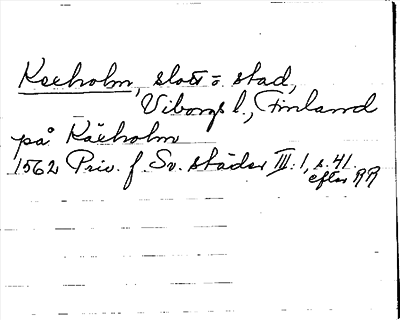 Kexholm, slott o. stad,
Viborgs l., Finland
på Käxholm
1562 Priv. f. Sv. städer III:1, s. 41.
efter RR